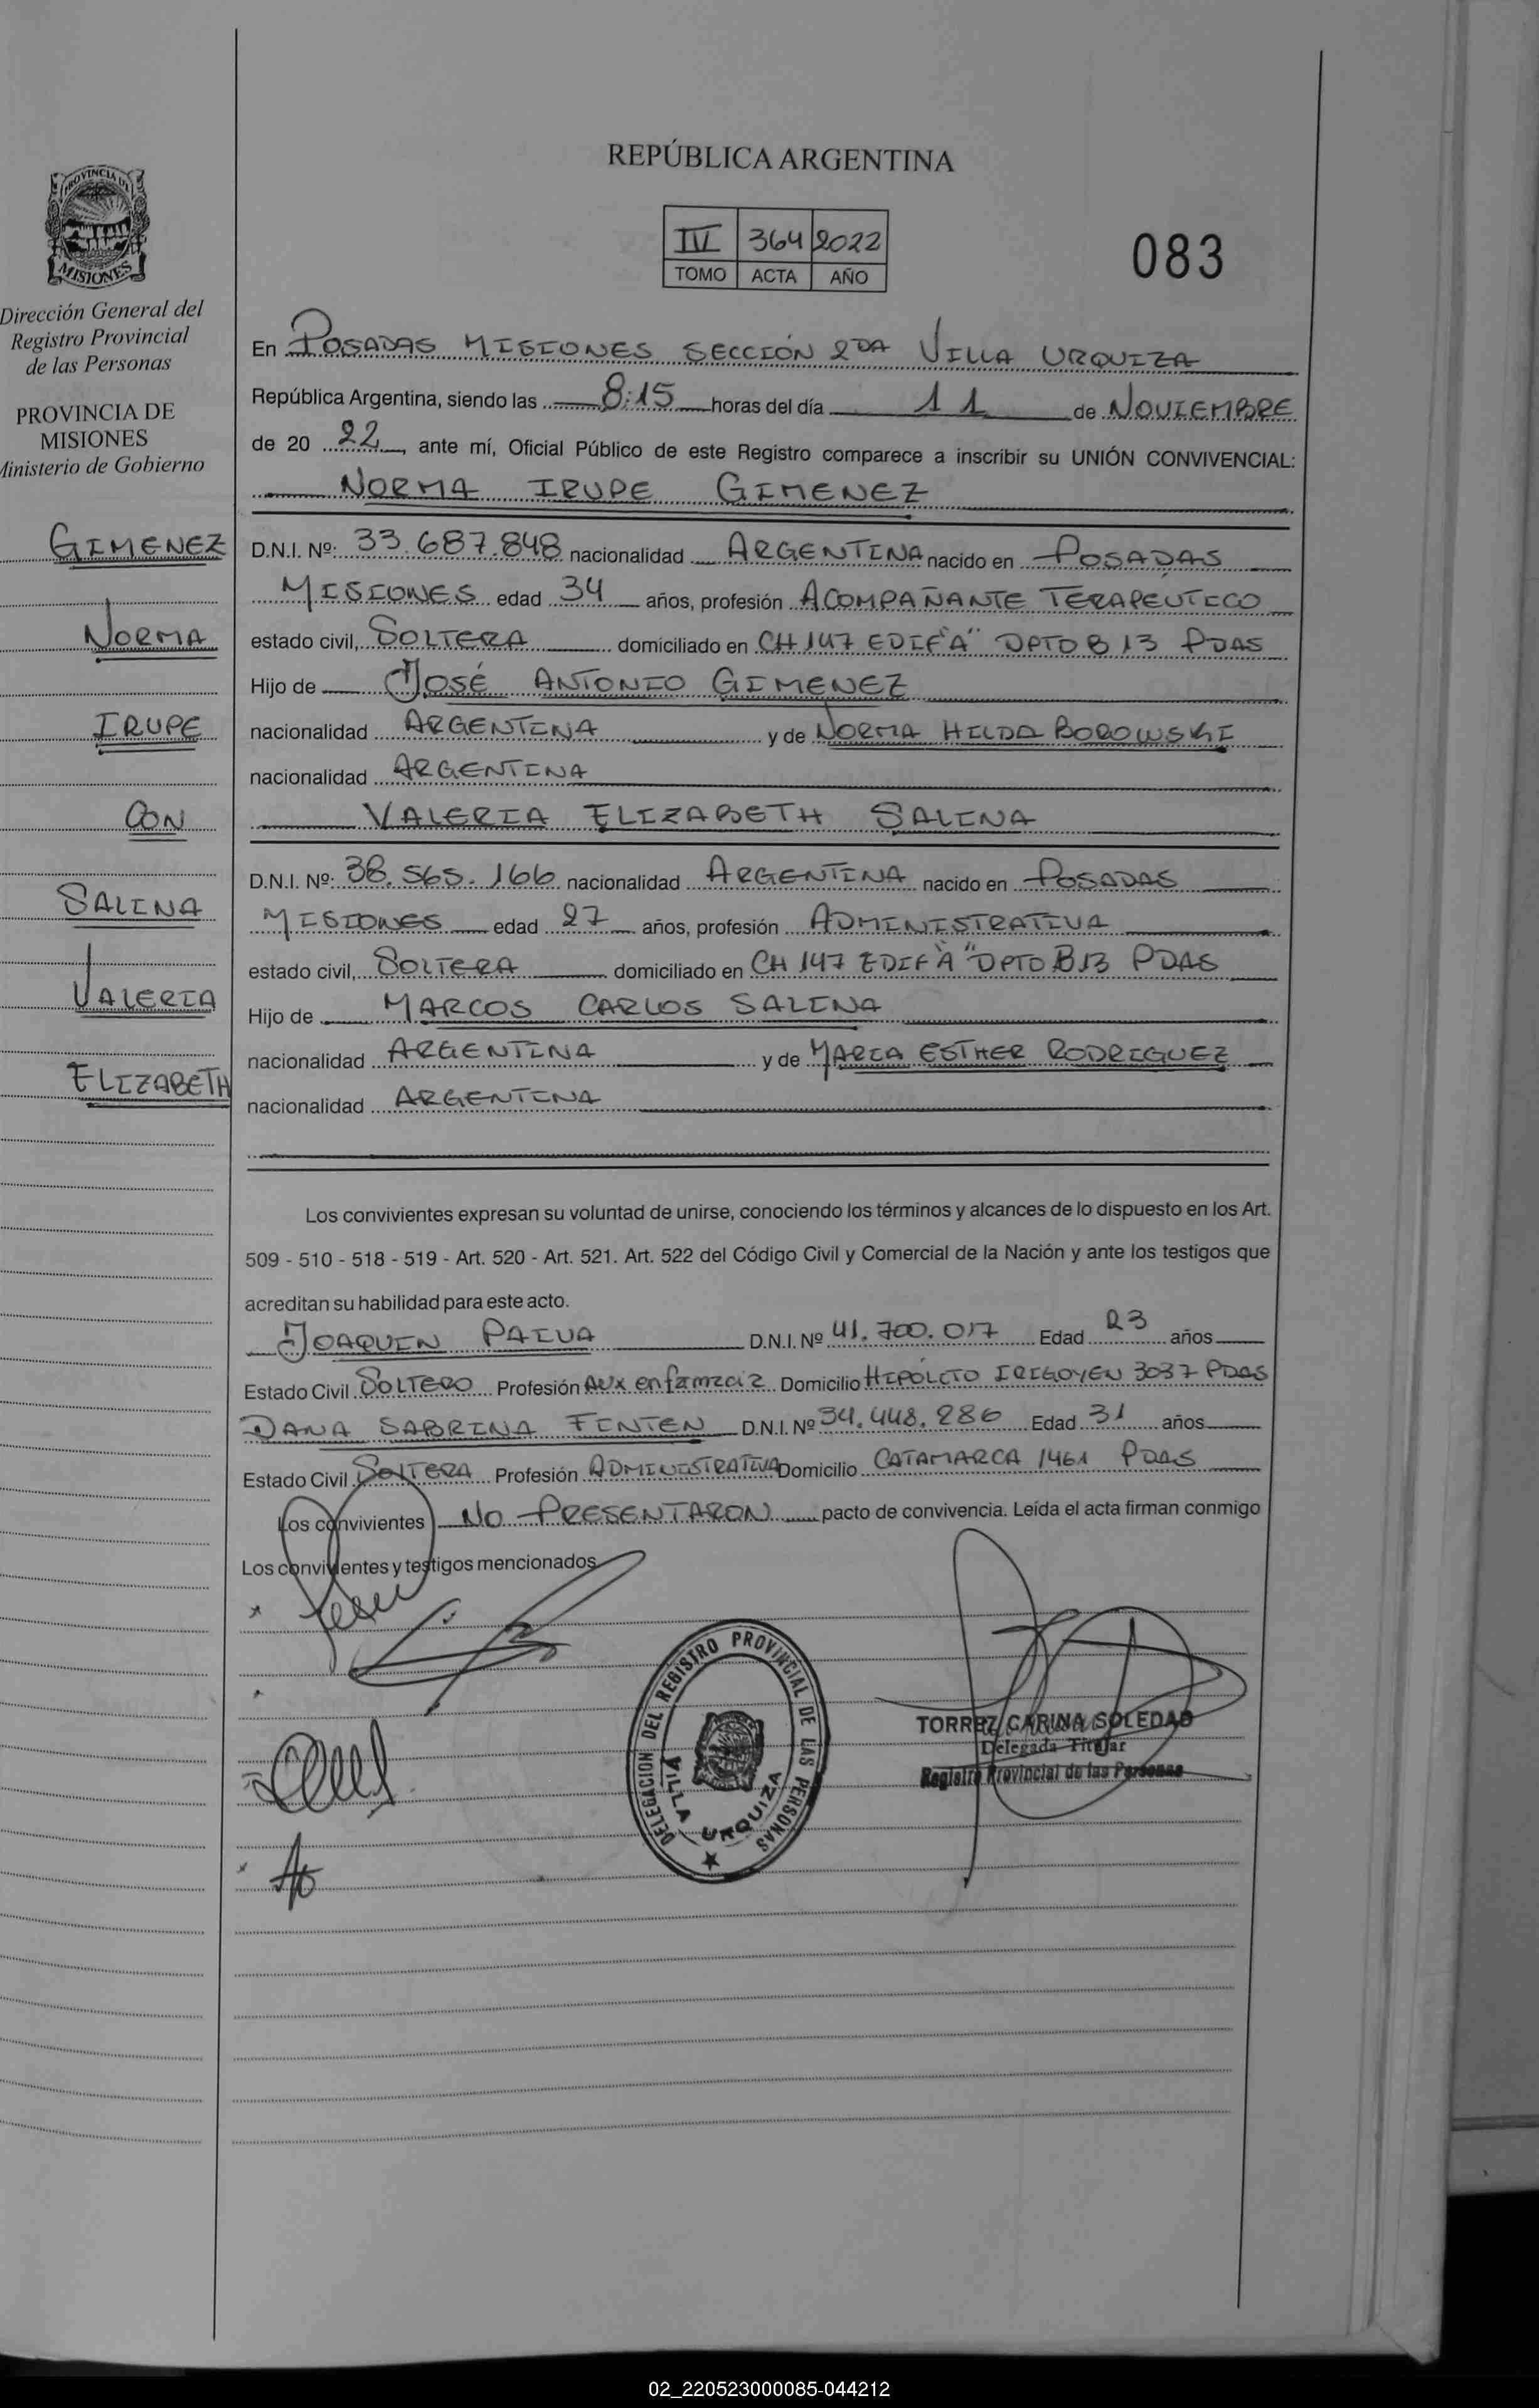 REPÚBLICA ARGENTINA
IV 364 2022
TOMO ACTA AÑO
083
PROVINCIA DE
MISIONES
Dirección General del
Registro Provincial
de las Personas
PROVINCIA DE
MISIONES
Ministerio de Gobierno
GIMENEZ
NORMA
IRUPE
CON
SALINA
VALERIA
ELIZABETH
En POSADAS MISIONES SECCIÓN 2DA VILLA URQUIZA
República Argentina, siendo las 8:15 horas del día 11 de NOVIEMBRE
de 20 22, ante mí, Oficial Público de este Registro comparece a inscribir su UNIÓN CONVIVENCIAL:
NORMA IRUPE GIMENEZ
D.N.I. Nº: 33.687.848 nacionalidad ARGENTINA nacido en POSADAS
MISIONES edad 34 años, profesión ACOMPAÑANTE TERAPEUTICO
estado civil, SOLTERA domiciliado en CH 147 EDIF "A" DPTO B 13 PDAS
Hijo de JOSÉ ANTONIO GIMENEZ
nacionalidad ARGENTINA y de NORMA HILDA BOROWSKI
nacionalidad ARGENTINA
VALERIA ELIZABETH SALINA
D.N.I. Nº: 38.565.166 nacionalidad ARGENTINA nacido en POSADAS
MISIONES edad 27 años, profesión ADMINISTRATIVA
estado civil, SOLTERA domiciliado en CH 147 EDIF "A" DPTO B13 PDAS
Hijo de MARCOS CARLOS SALINA
nacionalidad ARGENTINA y de MARIA ESTHER RODRIGUEZ
nacionalidad ARGENTINA
Los convivientes expresan su voluntad de unirse, conociendo los términos y alcances de lo dispuesto en los Art.
509 - 510 - 518 - 519 - Art. 520 - Art. 521. Art. 522 del Código Civil y Comercial de la Nación y ante los testigos que
acreditan su habilidad para este acto.
JOAQUIN PAIVA D.N.I. Nº 41.700.017 Edad 23 años
Estado Civil SOLTERO Profesión AUX enfarmacia Domicilio HIPÓLITO IRIGOYEN 3037 PDAS
DANA SABRINA FINTEN D.N.I. Nº 34.448.286 Edad 31 años
Estado Civil SOLTERA Profesión ADMINISTRATIVA Domicilio CATAMARCA 1461 PDAS
Los convivientes NO PRESENTARON pacto de convivencia. Leída el acta firman conmigo
Los convivientes y testigos mencionados
DELEGACION DEL REGISTRO PROVINCIAL DE LAS PERSONAS
VILLA URQUIZA
TORREZ CARINA SOLEDAD
Delegada Titular
Registro Provincial de las Personas
02_220523000085-044212